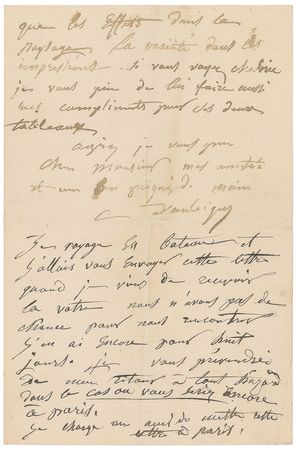 que les effets dans le
paysage la variété dans les
impressions. Si vous voyez
je vous prie de lui faire aussi
mes compliments pour ses deux
tableaux
je vous prie
cher monsieur mes amitiés
et une bonne poignée de main
C Daubigny
J'en voyage en bateau et
j'allais vous envoyer cette lettre
quand je viens de recevoir
la votre nous n'avons pas de
chance pour nous rencontrer
j'en ai encore pour huit
jours. je vous préviendrai
de mon retour à tout hasard
dans le cas ou vous seriez encore
à paris.
je charge un ami de mettre cette
lettre à paris.